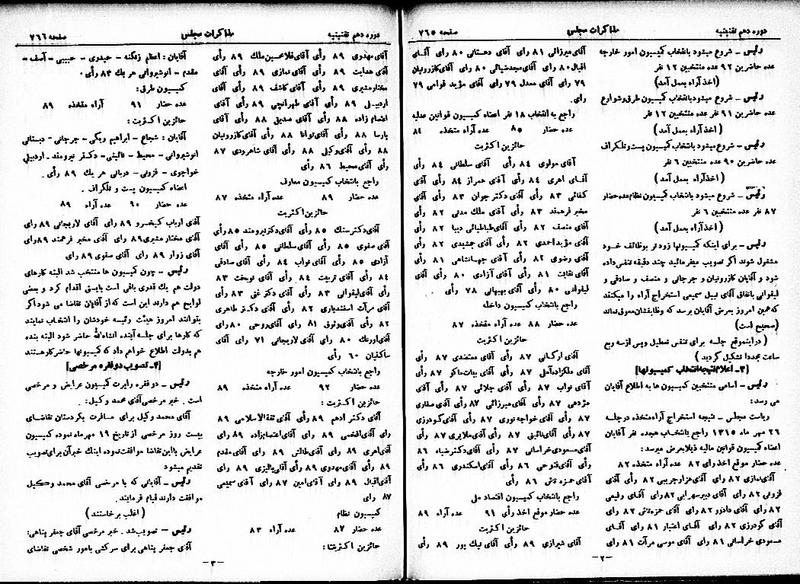 دوره دهم تقنینیه
مذاکرات مجلس
صفحه ۷۶۵
رئیس – شروع میشود بانتخاب کمیسیون امور خارجه
عده حاضرین ۹۲ عده منتخبین ۱۲ نفر
(اخذ آراء بعمل آمد)
رئیس – شروع میشود بانتخاب کمیسیون طرق و شوارع
عده حاضرین ۹۱ نفر عده منتخبین ۱۲ نفر
(اخذ آراء بعمل آمد)
رئیس – شروع میشود بانتخاب کمیسیون پست و تلگراف
عده حاضرین ۹۰ عده منتخبین ۶ نفر
(اخذ آراء بعمل آمد)
رئیس – شروع میشود بانتخاب کمیسیون نظام عده حضار
۸۷ نفر عده منتخبین ۶ نفر
(اخذ آراء بعمل آمد)
رئیس – برای اینکه کمیسیونها زودتر بوظائف خود
مشغول شوند اگر تصویب میفرمائید چند دقیقه تنفس داده
شود و آقایان کازرونیان و جرجانی و منصف و صادقی و
لیقوانی باتفاق آقای نبیل سمیعی استخراج آراء را میکنند
که همین امروز بعرض آقایان برسد که وظایفشان معوق نماند
(صحیح است)
(در اینموقع جلسه برای تنفس تعطیل و پس از سه ربع
ساعت مجدداً تشکیل گردید)
[۳- اعلام نتیجه انتخاب کمیسیونها]
رئیس – اسامی منتخبین کمیسیون ها به اطلاع آقایان
می رسد:
ریاست مجلس – نتیجه استخراج آراء مأخذه در جلسه
۲۶ مهر ماه ۱۳۱۵ راجع بانتخاب هیجده نفر آقایان
اعضاء کمیسیون قوانین مالیه ذیلا بعرض میرسد:
عده حضار موقع اخذ رأی ۸۲ عده آراء مأخذه ۸۲
قزونی ۸۲ رأی آقای دبیرسهرابی ۸۲ رأی آقای وثیقی
آقای گودرزی ۸۲ رأی آقای اعتبار ۸۱ رأی آقای
مسعودی خراسانی ۸۱ رأی آقای موسی مرآت ۸۱ رأی
آقای میرزائی ۸۱ رأی آقای دهستانی ۸۰ رأی آقای
اقبال ۸۰ رأی آقای مجد ضیائی ۸۰ رأی آقای کازرونیان
۷۹ رأی آقای معدل ۷۹ رأی آقای مؤید قوامی ۷۹
رأی.
راجع به انتخاب ۱۸ نفر اعضاء کمیسیون قوانین عدلیه
عده حضار ۸۵ عده آراء مأخذه ۸۴
حائزین اکثریت
آقای مولوی ۸۴ رأی آقای سلطانی ۸۴ رأی
آقای اهری ۸۴ رأی آقای همراز ۸۴ رأی آقای
کفائی ۸۳ رأی آقای دکتر جوان ۸۳ رأی آقای
مخبر فرهمند ۸۳ رأی آقای ملک مدنی ۸۲ رأی
آقای منصف ۸۲ رأی آقای طباطبائی دیبا ۸۲ رأی
آقای مؤید احمدی ۸۲ رأی آقای جمشیدی ۸۲ رأی
آقای رضوی ۸۲ رأی آقای جهانشاهی ۸۱ رأی
آقای نقابت ۸۱ رأی آقای آزادی ۸۰ رأی آقای
لیقوانی ۸۰ رأی آقای بهبهانی ۷۸ رأی
راجع بانتخاب کمیسیون داخله
عده حضار ۸۸ عده آراء مأخذه ۸۷
حائزین اکثریت
آقای ارگانی ۸۷ رأی آقای معتضدی ۸۷ رأی
آقای ملکزاده آملی ۸۷ رأی آقای بیات ماکو ۸۷ رأی
آقای نواب ۸۷ رأی آقای جلائی ۸۷ رأی آقای
مژدهی ۸۷ رأی آقای میرزائی ۸۷ رأی آقای صفاری
۸۷ رأی آقای خواجه نوری ۸۷ رأی آقای گودرزی
۸۷ رأی آقای نائینی ۸۷ رأی آقای ملایری ۸۷ رأی
آقای مسعودی خراسانی ۸۷ رأی آقای دکتر ضیاء ۸۶
رأی آقای فتوحی ۸۶ رأی آقای اسکندری ۸۶ رأی
آقای حمزه تاش ۸۶ رأی
راجع بانتخاب کمیسیون اقتصاد ملی
عده حضار موقع اخذ رأی ۹۱ عده آراء مأخذه ۸۹
حائزین اکثریت
آقای شیرازی ۸۹ رأی آقای نیک پور ۸۹ رأی
– ۲ –
دوره دهم تقنینیه
مذاکرات مجلس
صفحه ۷۶۶
آقای مهدوی ۸۹ رأی آقای غلامحسین ملک ۸۹ رأی
آقای هدایت ۸۹ رأی آقای نمازی ۸۹ رأی آقای
مختار مشیری ۸۹ رأی آقای کاشف ۸۹ رأی آقای
اردبیلی ۸۹ رأی آقای طهرانچی ۸۹ رأی آقای
اعتصام زاده ۸۸ رأی آقای صدیق ۸۸ رأی آقای
پارسا ۸۸ رأی آقای توانا ۸۸ رأی آقای کازرونیان
۸۸ رأی آقای وکیل ۸۸ رأی آقای شاهرودی ۸۷
رأی آقای محیط ۸۶ رأی
راجع بانتخاب کمیسیون معارف
عده حضار ۸۹ عده آراء مأخذه ۸۷
حائزین اکثریت
آقای دکتر سنگ ۸۵ رأی آقای دکتر نیرومند ۸۵ رأی
آقای صفوی ۸۵ رأی آقای سلطانی ۸۵ رأی آقای
آزادی ۸۵ رأی آقای نواب ۸۴ رأی آقای صادقی
۸۴ رأی آقای تربیت ۸۴ رأی آقای نوبخت ۸۳
رأی آقای لیقوانی ۸۳ رأی آقای دکتر غنی ۸۳ رأی
آقای مرآت اسفندیاری ۸۲ رأی آقای دکتر طاهری
۸۲ رأی آقای وثوق ۸۱ رأی آقای روحی ۸۰ رأی
آقای اورنگ ۸۰ رأی آقای لاریجانی ۷۱ رأی آقای
ساکنیان ۶۰ رأی
راجع بانتخاب کمیسیون امور خارجه
عده حضار ۹۲ عده آراء مأخذه ۸۹
حائزین اکثریت:
آقای دکتر ادهم ۸۹ رأی آقای ثقةالاسلامی ۸۹
رأی آقای افخمی ۸۹ رأی آقای اعتصام زاده ۸۹ رأی
آقای اهری ۸۹ رأی آقای طالش ۸۹ رأی آقای مقدم
آقای اقبال ۸۹ رأی آقای امین ۸۷ رأی آقای سمیعی
۸۷ رأی
کمیسیون نظام
عده حضار ۸۷ عده آراء ۸۳
حائزین اکثریت:
آقایان: اعظم زنگنه – حیدری – حبیبی – آصف –
مقدم – انوشیروانی هر یک ۸۳ رأی.
کمیسیون طرق:
عده حضار ۹۱ آراء مأخذه ۸۹
حائزین اکثریت:
آقایان: شجاع – ابراهیم ریگی – جرجانی – دبستانی
انوشیروانی – محیط – فاتیلی – دکتر نیرومند – اردبیلی
خواجوی – قزونی – دربانی هر یک ۸۹ رأی.
اعضاء کمیسیون پست و تلگراف.
عده حضار ۹۰ عده آراء ۸۹
آقای ارباب کیخسرو ۸۹ رای آقای لاریجانی ۸۹ رای
آقای مختار مشیری ۸۹ رای آقای مخبر فرهمند ۸۹ رای
آقای زوار ۸۹ رای آقای صفوی ۸۹ رای
رئیس – چون کمیسیون ها منتخب شد البته کارهای
دولت هم یک قدری باقی است بایستی اقدام کرد و بعضی
لوایح هم دارند این است که از آقایان تقاضا می شود اگر
بتوانند امروز هیئت رئیسه خودشان را انتخاب نمایند
که کارها برای جلسه آینده انشاءالله حاضر شود البته بنده
هم بدولت اطلاع خواهم داد که کمیسیونها حاضر کار هستند
[۴- تصویب دو فقره مرخصی]
رئیس – دو فقره راپرت کمیسیون عرایض و مرخصی
است. خبر مرخصی آقای محمد وکیل:
آقای محمد وکیل برای مسافرت بکردستان تقاضای
بیست روز مرخصی از تاریخ ۱۹ مهرماه نموده کمیسیون
عرایض با این تقاضا موافقت نموده اینک خبر آن برای تصویب
تقدیم میشود
رئیس – آقایانی که با مرخصی آقای محمد وکیل
موافقت دارند قیام فرمایند.
(اغلب برخاستند)
رئیس – تصویب شد. خبر مرخصی آقای جعفر پناهی:
آقای جعفر پناهی برای سرکشی بامور شخصی تقاضای
– ۳ –